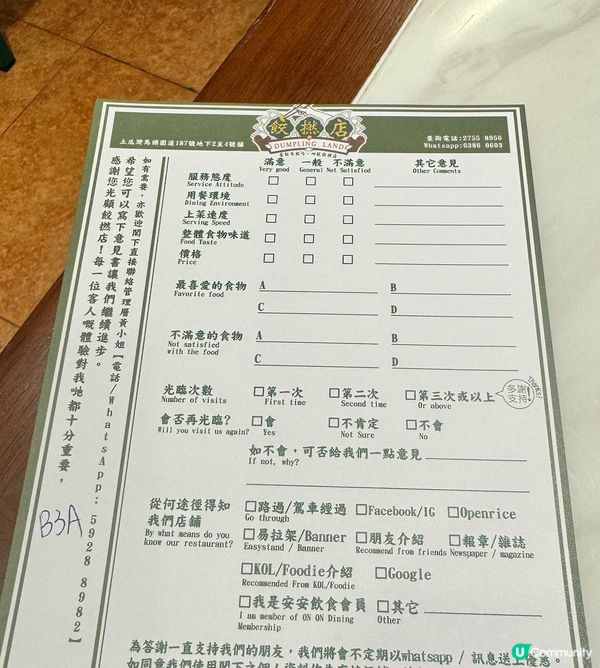 餃撚店
DUMPLING LAND
土瓜灣馬頭圍道187號地下2至4號舖
查詢電話:2755 8956
Whatsapp:6386 0603
滿意 一般 不滿意 其它意見
Very good General Not Satisfied Other Comments
服務態度
Service Attitude
用餐環境
Dining Environment
上菜速度
Serving Speed
整體食物味道
Food Taste
價格
Price
最喜愛的食物 A B
Favorite food
C D
不滿意的食物 A B
Not satisfied
with the food
C D
光臨次數 第一次 第二次 第三次或以上
Number of visits First time Second time Or above
多謝支持!
Thanks!
會否再光臨? 會 不肯定 不會
Will you visit us again? Yes Not Sure No
如不會,可否給我們一點意見
If not, why?
從何途徑得知
我們店舖
By what means do you
know our restaurant?
路過/駕車經過 Facebook/IG Openrice
Go through
易拉架/Banner 朋友介紹 報章/雜誌
Easystand / Banner Recommend from friends Newspaper / magazine
KOL/Foodie介紹 Google
Recommended From KOL/Foodie
我是安安飲食會員 其它
I am member of ON ON Dining Other
Membership
為答謝一直支持我們的朋友,我們將會不定期以whatsapp / 訊息送上優惠。
感謝您光顧餃撚店!每一位客人嘅體驗對我哋都十分重要,
希望您可以寫下意見書讓我們繼續進步。
如有需要,亦歡迎閣下直接聯絡管理層黃小姐【電話/WhatsApp: 5928 8982】
B3A
U Community